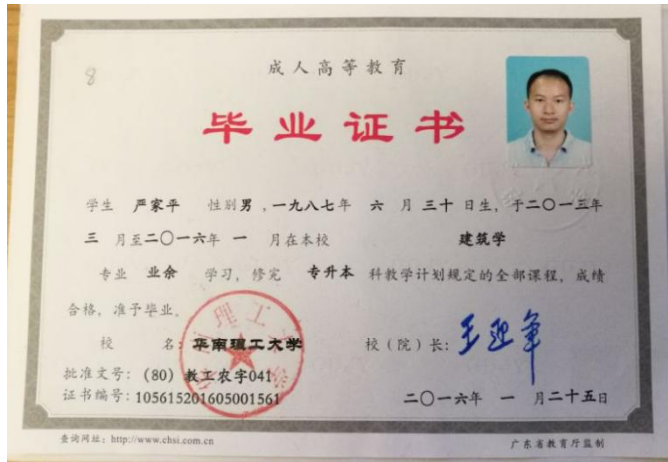 8
成人高等教育
毕业证书
学生 严家平 性别 男 ,一九八七年 六 月 三十 日生, 于二〇一三年
三 月至二〇一六年 一 月在本校 建筑学
专业 业余 学习, 修完 专升本 科教学计划规定的全部课程, 成绩
合格, 准予毕业。
校 名: 华南理工大学 校(院)长: 王迎军
批准文号: (80) 教工农字041
证书编号: 105615201605001561 二〇一六年 一 月二十五日
查询网址: http://www.chsi.com.cn 广东省教育厅监制